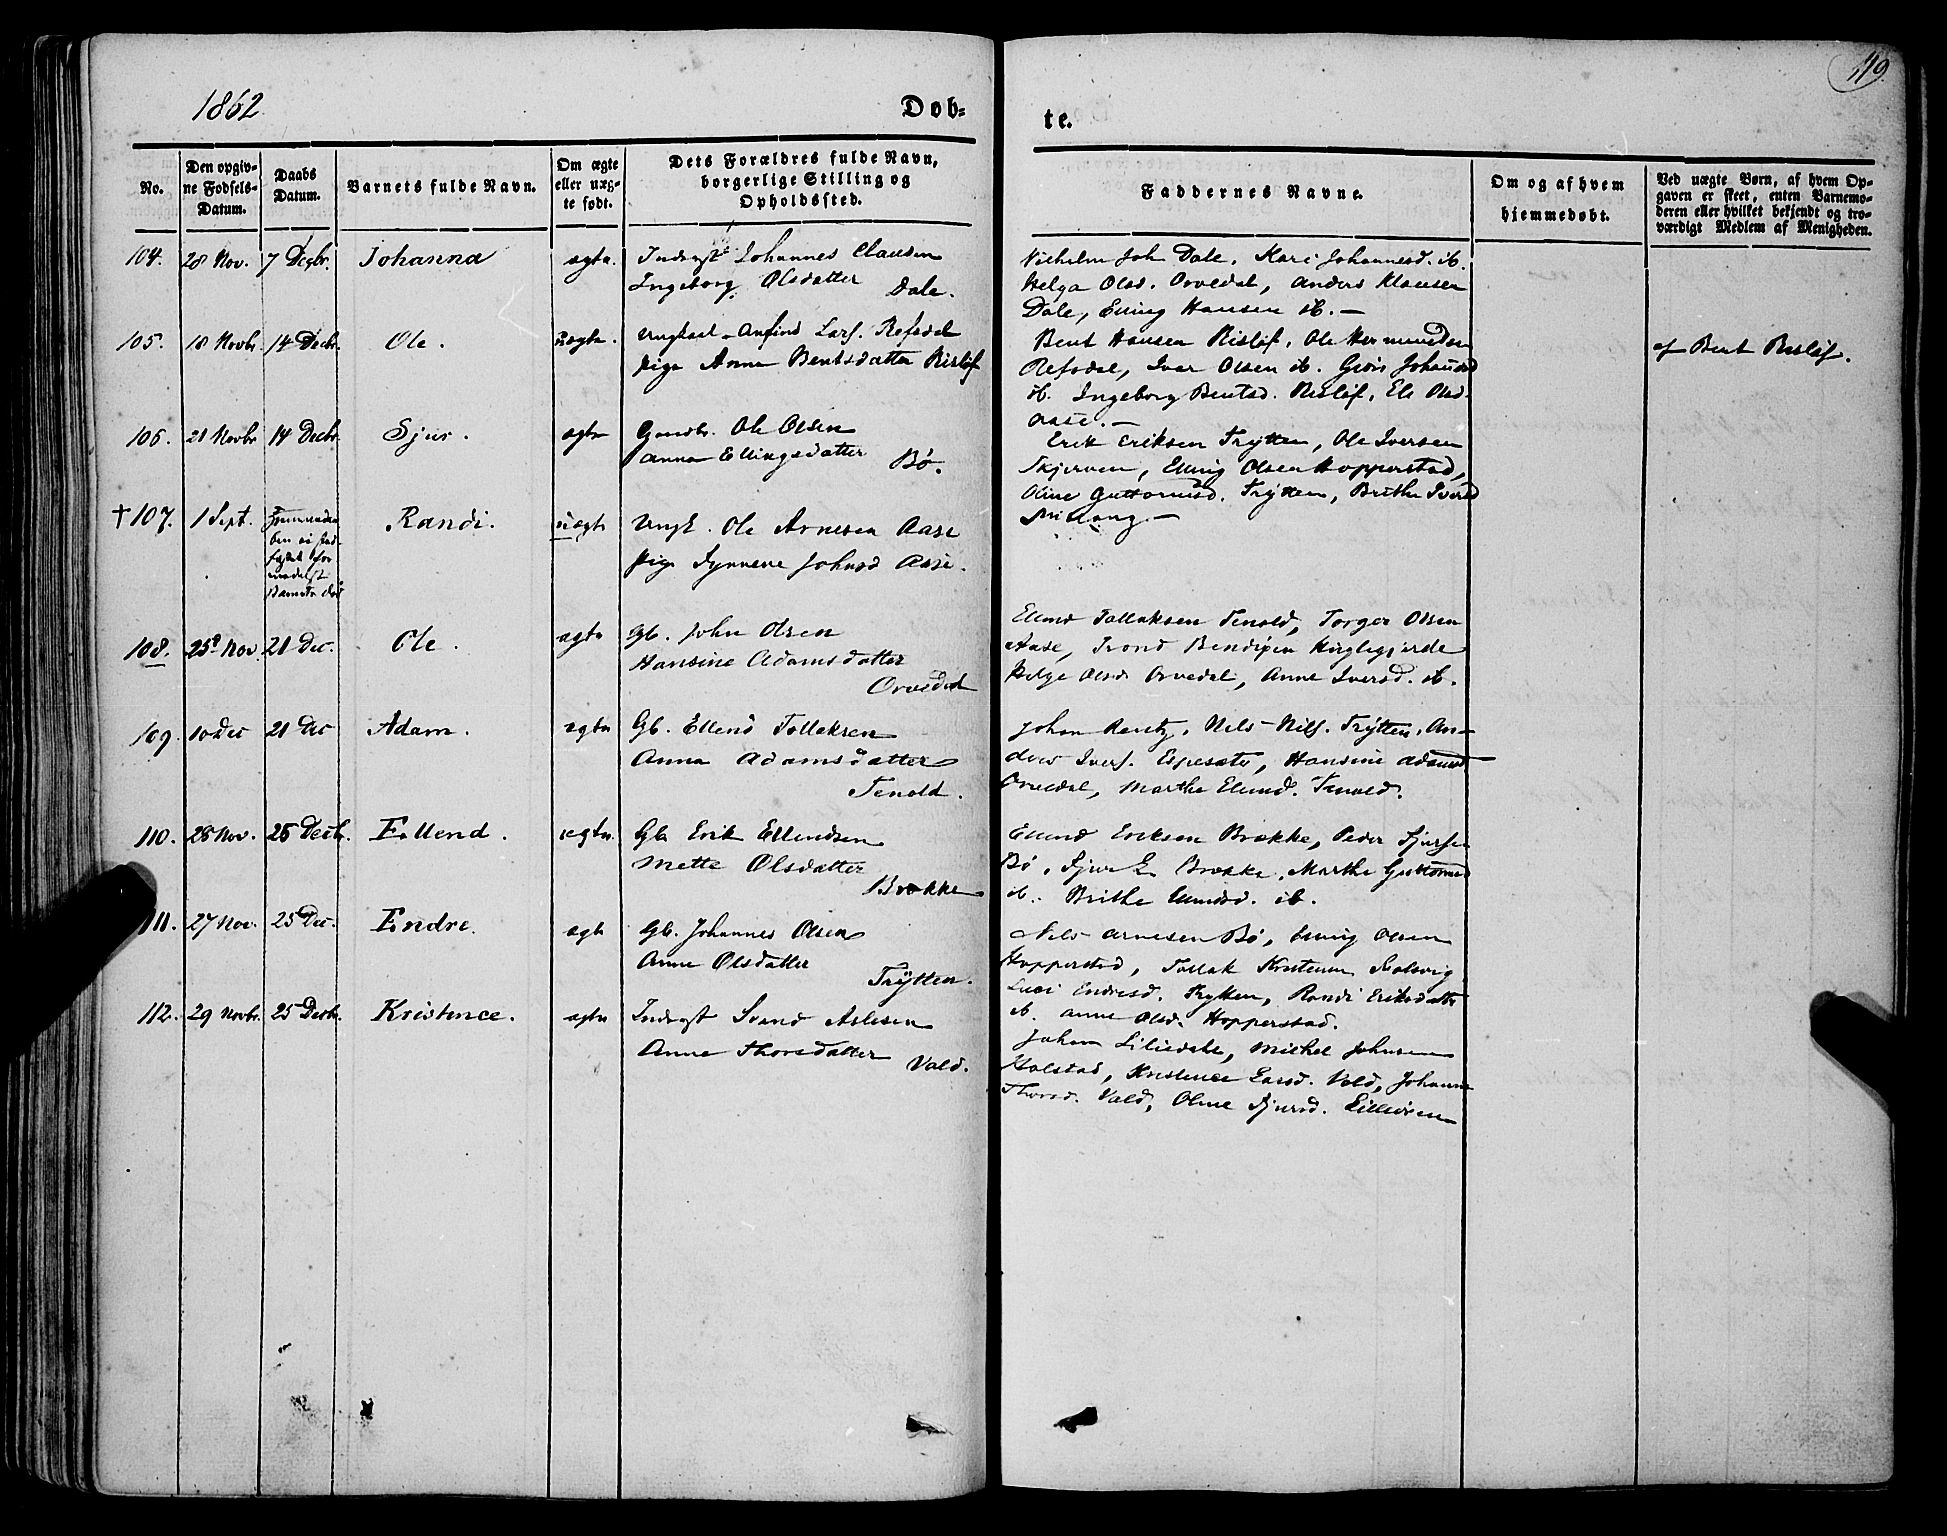 1862
Døb-
te.
119.
No.
Den opgiv-
ne Fødsels-
Datum.
Daabs
Datum.
Barnets fulde Navn.
Om ægte
eller uæg-
te født.
Dets Forældres fulde Navn,
borgerlige Stilling og
Opholdssted.
Faddernes Navne.
Om og af hvem
hjemmedøbt.
Ved uægte Børn, af hvem Op-
gaven er skeet, enten Barnemo-
deren eller hvilket bekjendt og tro-
værdigt Medlem af Menigheden.
104. 28 Nov. 7 Decbr. Johanna ægte. Inderst Johannes Clausen
Ingeborg Olsdatter Dale.
Vilhelm Joh Dale, Kari Johannesd. ib.
Helga Olsd. Orvedal, Anders Klausen
Dale, Elling Hansen ib. —
105. 18 Novbr. 14 Decbr. Ole. uægte. Ungkarl Anfind Lars. Refsdal
Pige Anna Bentsdatter Risløf
Bent Hansen Risløf, Ole Hermundsen
Refsdal, Ivar Olsen ib. Johannesd
ib. Ingeborg Bentsd. Risløf, Eli Olsd.
Aase. —
af Bent Risløf.
106. 21 Novbr 14 Decbr. Sjur. ægte Gaardbr. Ole Olsen
Anna Ellingsdatter Bø.
Erik Eriksen Trytten, Ole Iversen
Skjerven, Elling Olsen Hopperstad,
Oline Guttormsd. Trÿtten, Brithe Iversd
—
†107. 1 Sept. Randi. uægte Ungk. Ole Arnesen Aase
Pige Synneve Johnsd Aase.
108. 25de Nov. 21 Dec. Ole. ægte Gb. John Olsen
Hansine Adamsdatter
Orvedal
Ellend Tollaksen Tenold, Torger Olsen
Aase, Trond Bendixen
Helge Olsd Orvedal, Anne Iversd. ib.
109. 10 Dec 21 Dec Adam. ægte Gb. Ellend Tollaksen
Anna Adamsdatter
Tenold.
Johan Rentz, Nils Nils. Trÿtten, An-
ders Ivers. Espesæte, Hansine Adamsd
Orvedal, Marthe Ellend. Tenold.
110. 28 Nov. 26 Decbr. Ellend. ægte Gb. Erik Ellendsen
Mette Olsdatter
Brække
Ellend Eriksen Brække, Peder Sjursen
Bø, Sjur E. Brække, Marthe Guttormsd
ib. Brithe Ellendsd. ib.
111. 27 Nov. 25 Dec. Endre. ægte Gb. Johannes Olsen
Anne Olsdatter
Trÿtten.
Nils Arnesen Bø, Elling Olsen
Hopperstad, Tollak Kristensen
Endresd. Trytten, Randi Eriksdatter
ib. Anne Olsd. Hopperstad.
112. 29 Novbr. 25 Decbr. Kristence. ægte Inderst Svend Aslesen
Anne Thoresdatter Vold.
Johan Liliedale, Michel Johnsen
Holstad, Kristence Larsd. Vold, Johanne
Thoresd. Vold, Oline Sjursd.